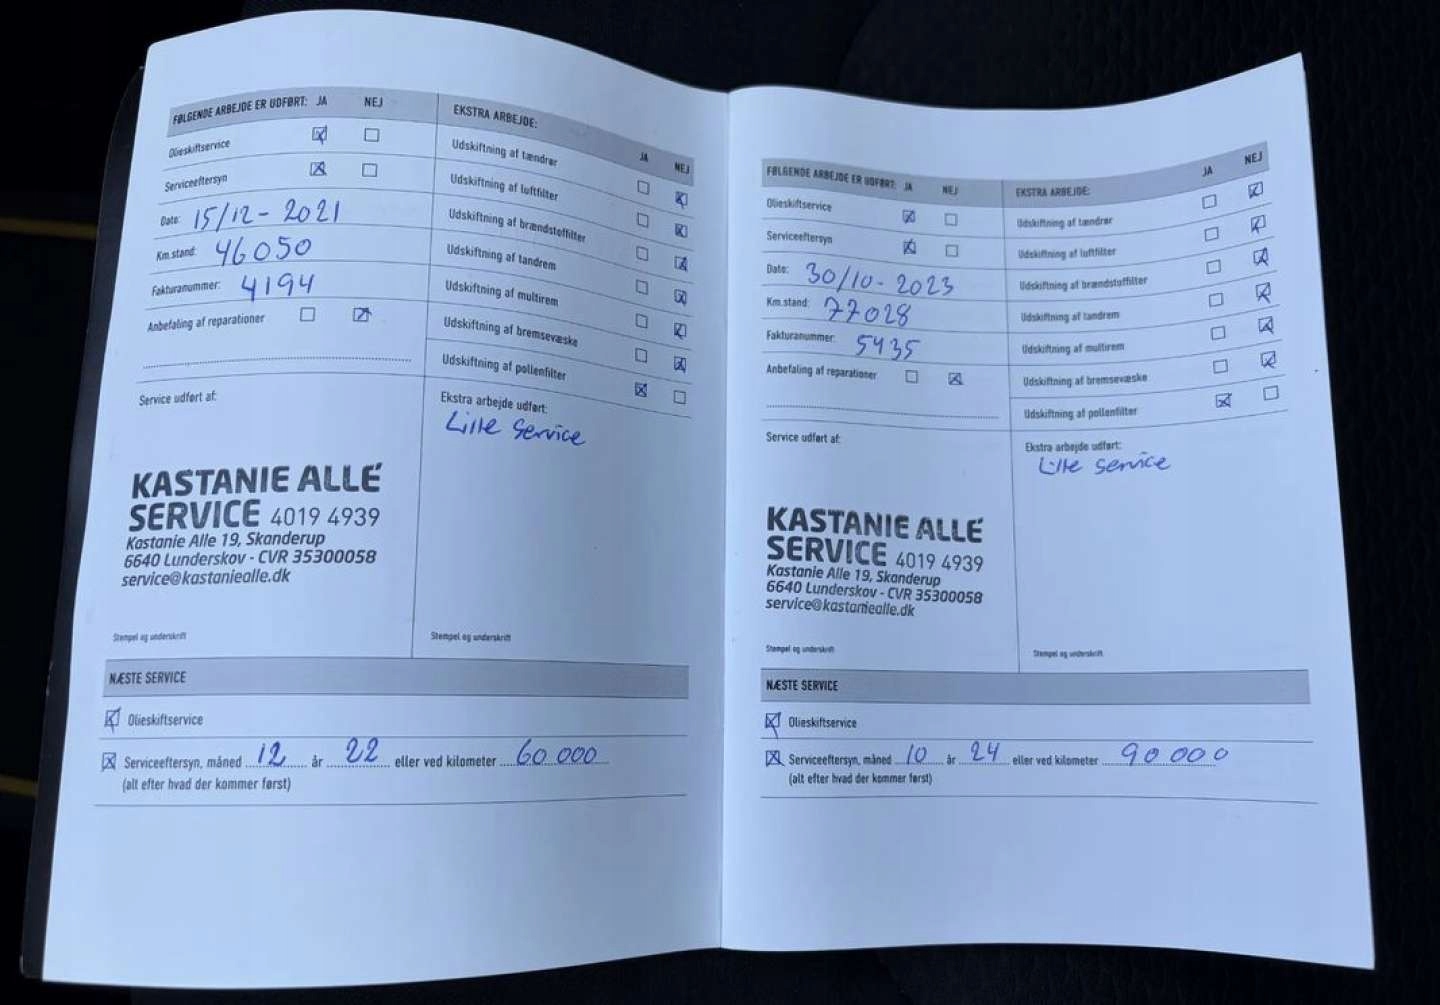 FØLGENDE ARBEJDE ER UDFØRT: JA NEJ
Olieskiftservice
Serviceeftersyn
Dato: 15/12-2021
Km.stand: 46050
Fakturanummer: 4194
Anbefaling af reparationer
Service udført af:
KASTANIE ALLÉ
SERVICE 4019 4939
Kastanie Alle 19, Skanderup
6640 Lunderskov - CVR 35300058
service@kastaniealle.dk
Stempel og underskrift
EKSTRA ARBEJDE:
JA NEJ
Udskiftning af tændrør
Udskiftning af luftfilter
Udskiftning af brændstoffilter
Udskiftning af tandrem
Udskiftning af multirem
Udskiftning af bremsevæske
Udskiftning af pollenfilter
Ekstra arbejde udført:
Lille Service
Stempel og underskrift
NÆSTE SERVICE
Olieskiftservice
Serviceeftersyn, måned 12 år 22 eller ved kilometer 60 000
(alt efter hvad der kommer først)
FØLGENDE ARBEJDE ER UDFØRT: JA NEJ
Olieskiftservice
Serviceeftersyn
Dato: 30/10-2023
Km.stand: 77028
Fakturanummer: 5435
Anbefaling af reparationer
Service udført af:
KASTANIE ALLÉ
SERVICE 4019 4939
Kastanie Alle 19, Skanderup
6640 Lunderskov - CVR 35300058
service@kastaniealle.dk
Stempel og underskrift
EKSTRA ARBEJDE:
JA NEJ
Udskiftning af tændrør
Udskiftning af luftfilter
Udskiftning af brændstoffilter
Udskiftning af tandrem
Udskiftning af multirem
Udskiftning af bremsevæske
Udskiftning af pollenfilter
Ekstra arbejde udført:
Lille service
Stempel og underskrift
NÆSTE SERVICE
Olieskiftservice
Serviceeftersyn, måned 10 år 24 eller ved kilometer 90 000
(alt efter hvad der kommer først)